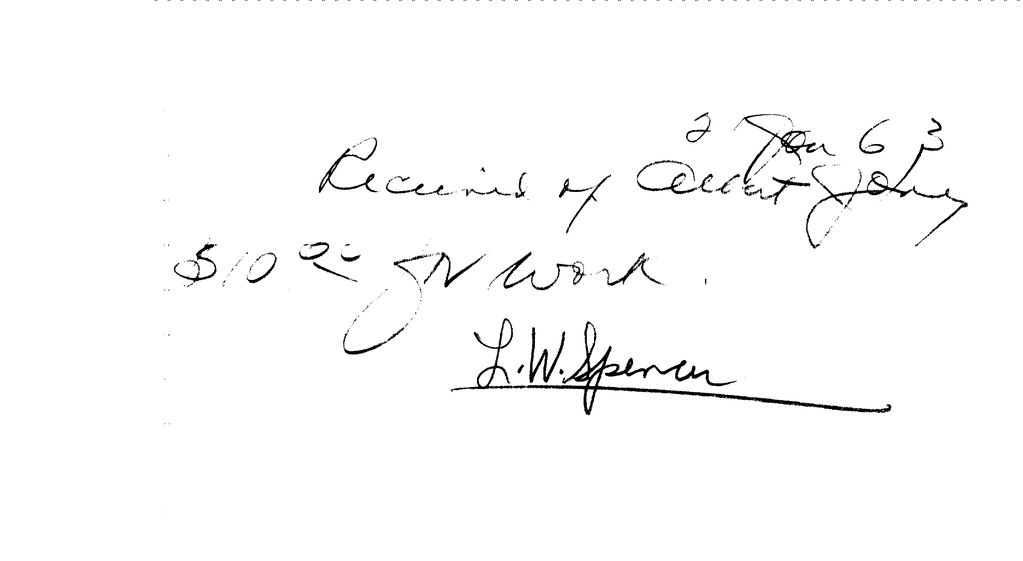 2 Jan 63
Received of Albert Jones
$10.00 for work.
L.W. Spencer